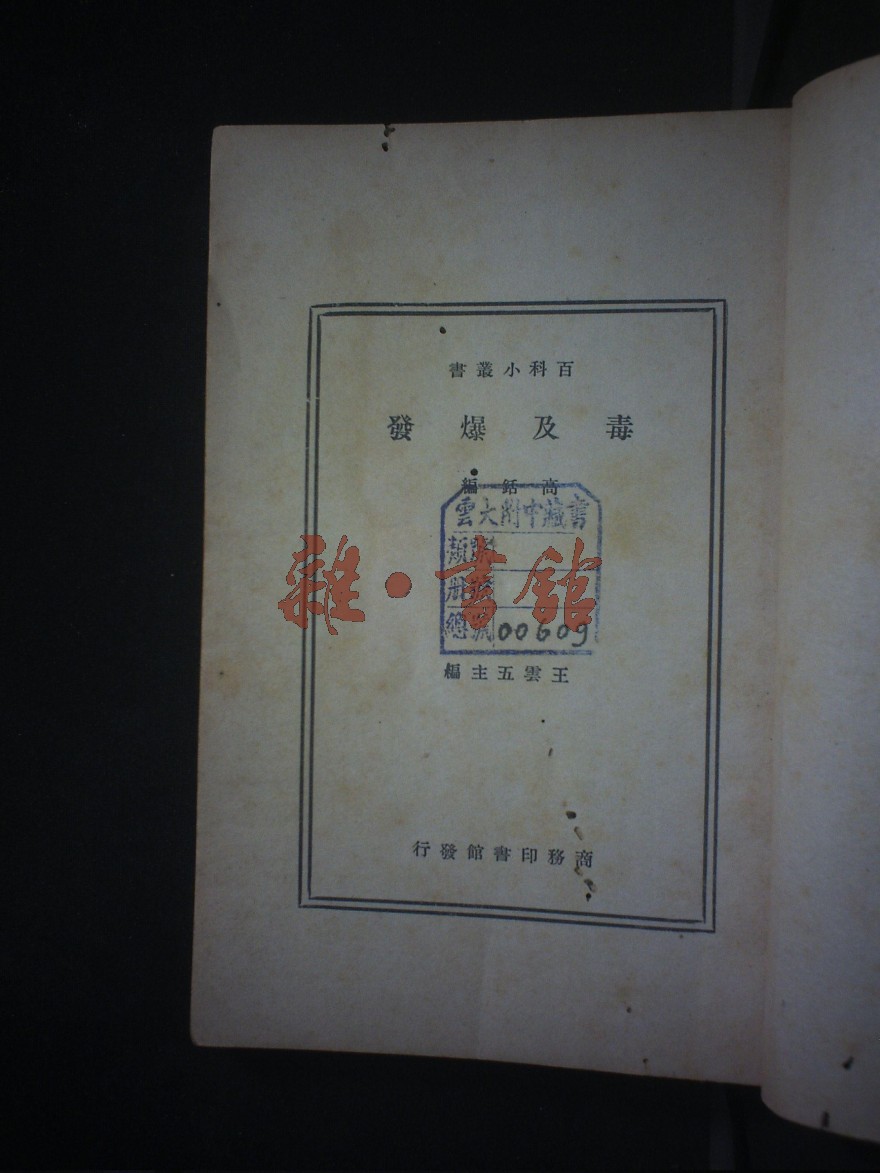 百科小叢書
毒及爆發
高銛編
雲大附中藏書
類號
冊號
總號 00609
雜·書館
王雲五主編
商務印書館發行